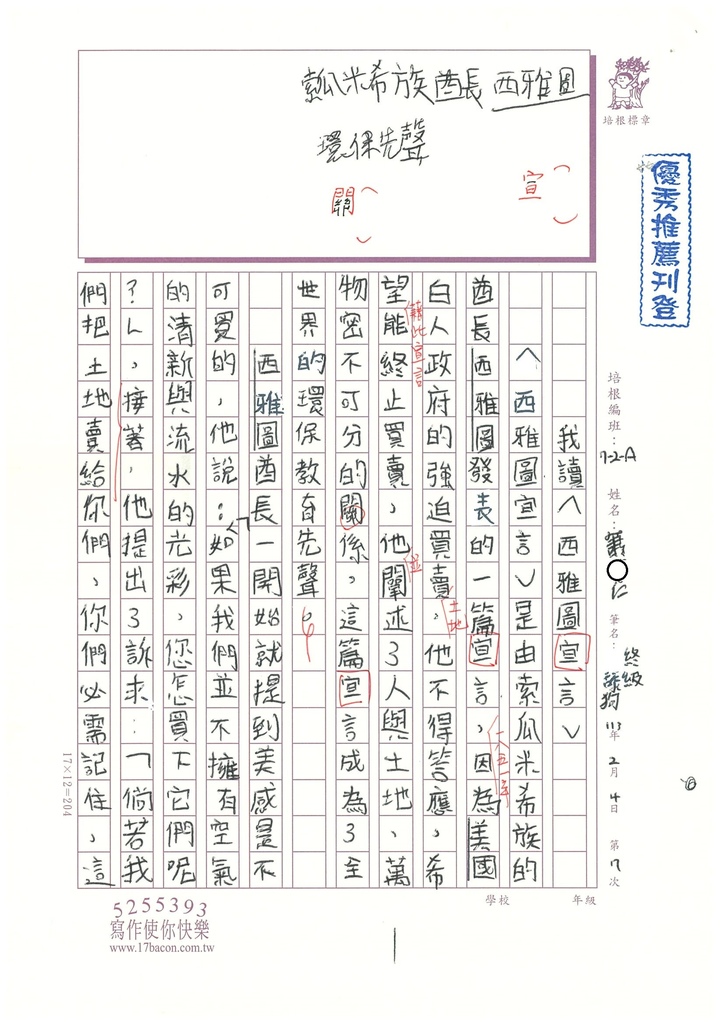 索瓜米希族酋長西雅圖
環保先聲
關(
)
宣(
)
培根標章
優秀推薦刊登
培根編班：7-2-A
姓名：
○仁
筆名：終級
113年2月4日 第7次
我讀〈西雅圖宣言〉
〈西雅圖宣言〉是由索瓜米希族的
酋長西雅圖發表的一篇宣言，因為美國
一八五一年
白人政府的強迫買賣，他不得答應，希
土地
藉此宣言
望能終止買賣，他闡述了人與土地、萬
並
物密不可分的關係，這篇宣言成為了全
世界的環保教育先聲。
西雅圖酋長一開始就提到美感是不
可買的，他說：「如果我們並不擁有空氣
的清新與流水的光彩，您怎買下它們呢
？」，接著，他提出了訴求：「倘若我
們把土地賣給你們，你們必需記住，這
17×12=204
學校
年級
5255393
寫作使你快樂
www.17bacon.com.tw